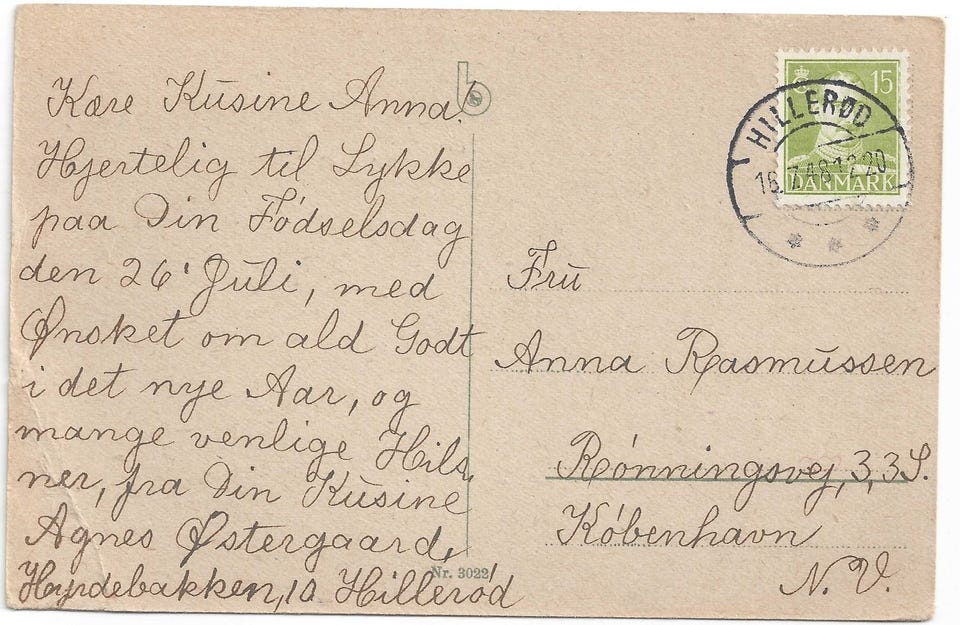 Kære Kusine Anna!
Hjertelig til Lykke
paa Din Födselsdag
den 26' Juli, med
Ønsket om ald Godt
i det nye Aar, og
mange venlige Hils
ner, fra Din Kusine
Agnes Østergaard,
Hyrdebakken, 10 Hilleród
Nr. 3022
15
HILLERØD
DANMARK
Fru
Anna Rasmussen
Rónningsvej, 3, 3S.
Kóbenhavn
N.V.